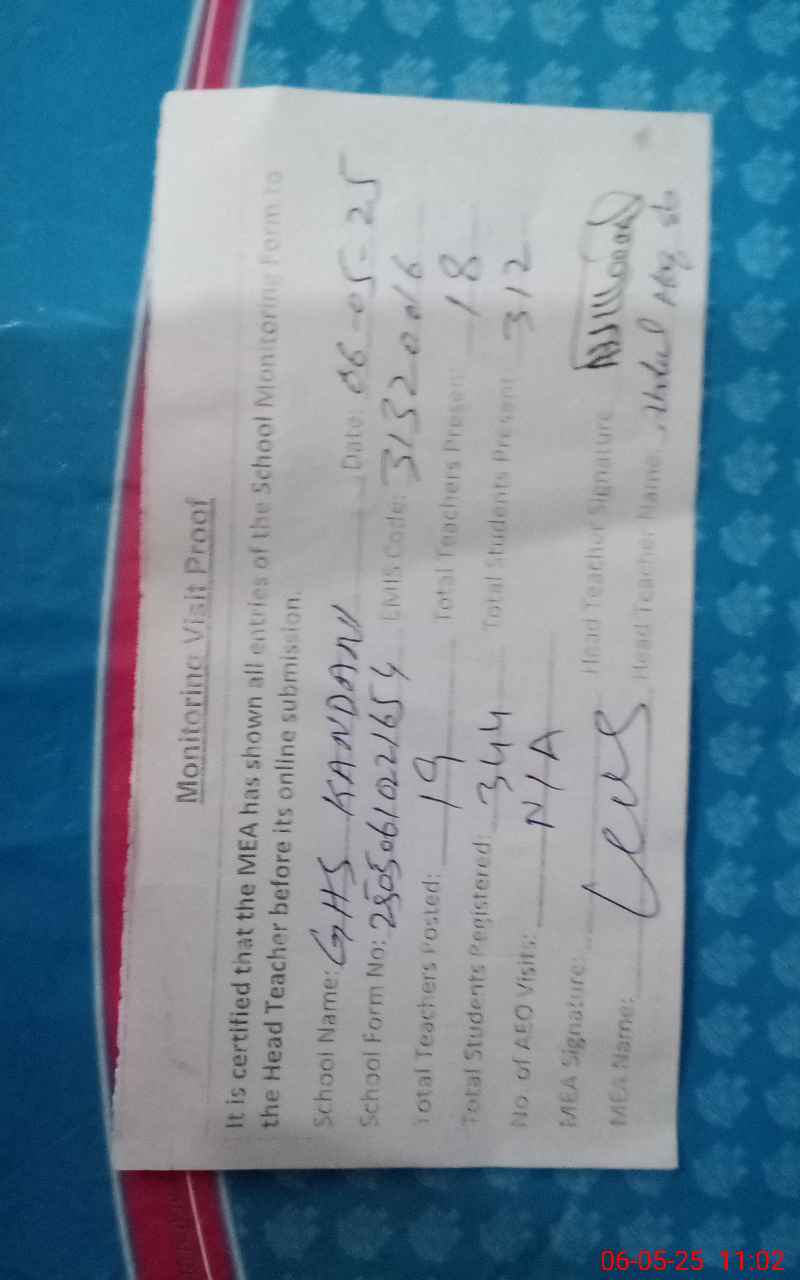 Monitoring Visit Proof
It is certified that the MEA has shown all entries of the School Monitoring Form to
the Head Teacher before its online submission.
School Name: GHS KANDANI Date: 06-05-25
School Form No: 25050610221654 EMIS Code: 31320016
Total Teachers Posted: 19 Total Teachers Present: 18
Total Students Registered: 344 Total Students Present: 312
No. of AEO Visits: N/A
MEA Signature: Head Teacher Signature
MEA Name: Head Teacher Name: Abdul
06-05-25 11:02